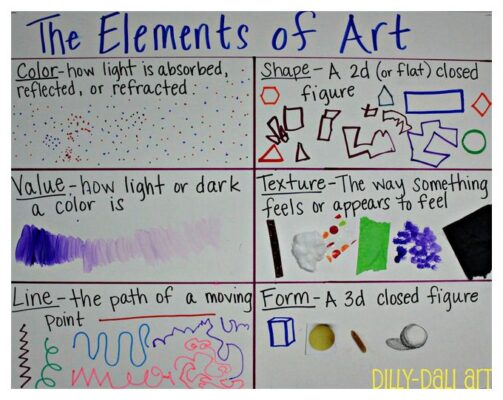 The Elements of Art
Color - how light is absorbed,
reflected, or refracted
Shape - A 2d (or flat) closed
figure
Value - how light or dark
a color is
Texture - The way something
feels or appears to feel
Line - the path of a moving
point
Form - A 3d closed figure
DILLY-DALI ART